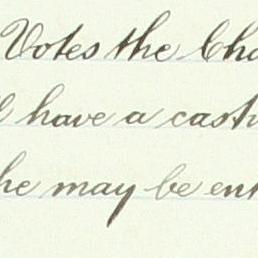 Votes the Cha
have a casti
he may be ent